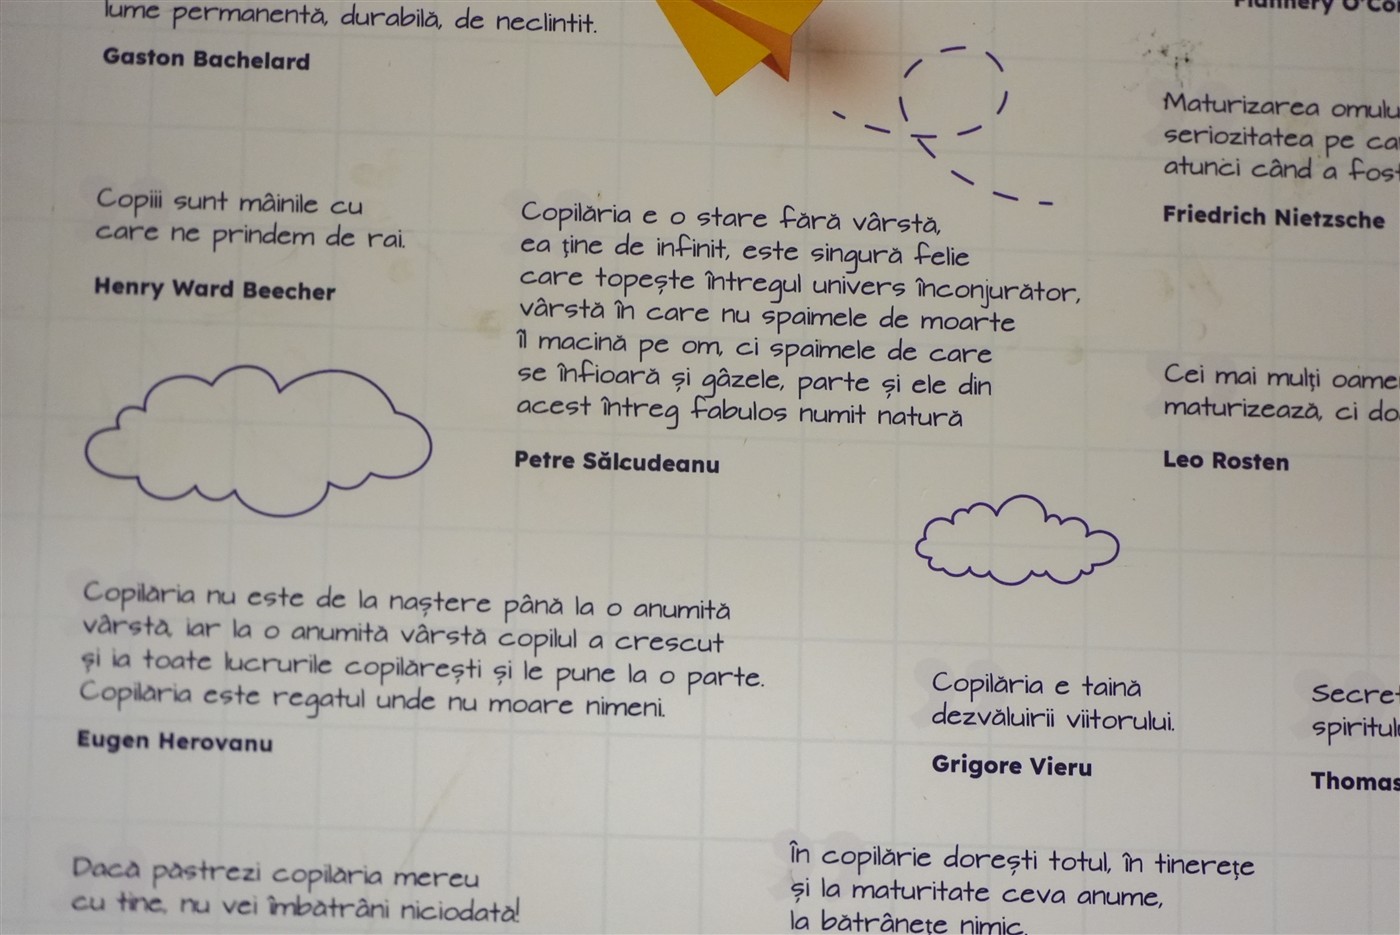 lume permanentă, durabilă, de neclintit.
Gaston Bachelard
Copiii sunt mâinile cu
care ne prindem de rai.
Henry Ward Beecher
Copilăria e o stare fără vârstă,
ea ține de infinit, este singură felie
care topește întregul univers înconjurător,
vârstă în care nu spaimele de moarte
îl macină pe om, ci spaimele de care
se înfioară și gâzele, parte și ele din
acest întreg fabulos numit natură
Petre Sălcudeanu
Flannery O'Co
Maturizarea omulu
seriozitatea pe ca
atunci când a fost
Friedrich Nietzsche
Cei mai mulți oame
maturizează, ci do
Leo Rosten
Copilăria nu este de la naștere până la o anumită
vârstă, iar la o anumită vârstă copilul a crescut
și ia toate lucrurile copilărești și le pune la o parte.
Copilăria este regatul unde nu moare nimeni.
Eugen Herovanu
Copilăria e taină
dezvăluirii viitorului.
Grigore Vieru
Secret
spiritulu
Thomas
Dacă păstrezi copilăria mereu
cu tine, nu vei îmbătrâni niciodată!
În copilărie dorești totul, în tinerețe
și la maturitate ceva anume,
la bătrânețe nimic.